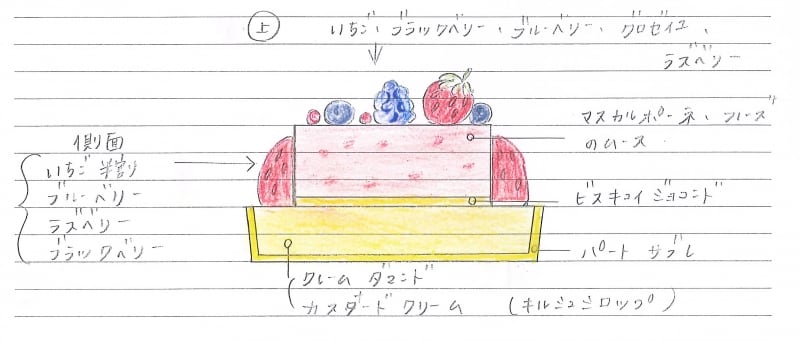 上 いちご、ブラックベリー、ブルーベリー、グロゼイユ、
ラズベリー
マスカルポーネ、フレーズ
のムース
側面
いちご 半割り
ブルーベリー
ラズベリー
ブラックベリー
ビスキュイ ジョコンド
パート サブレ
クレーム ダマンド
カスタード クリーム (キルシュシロップ)